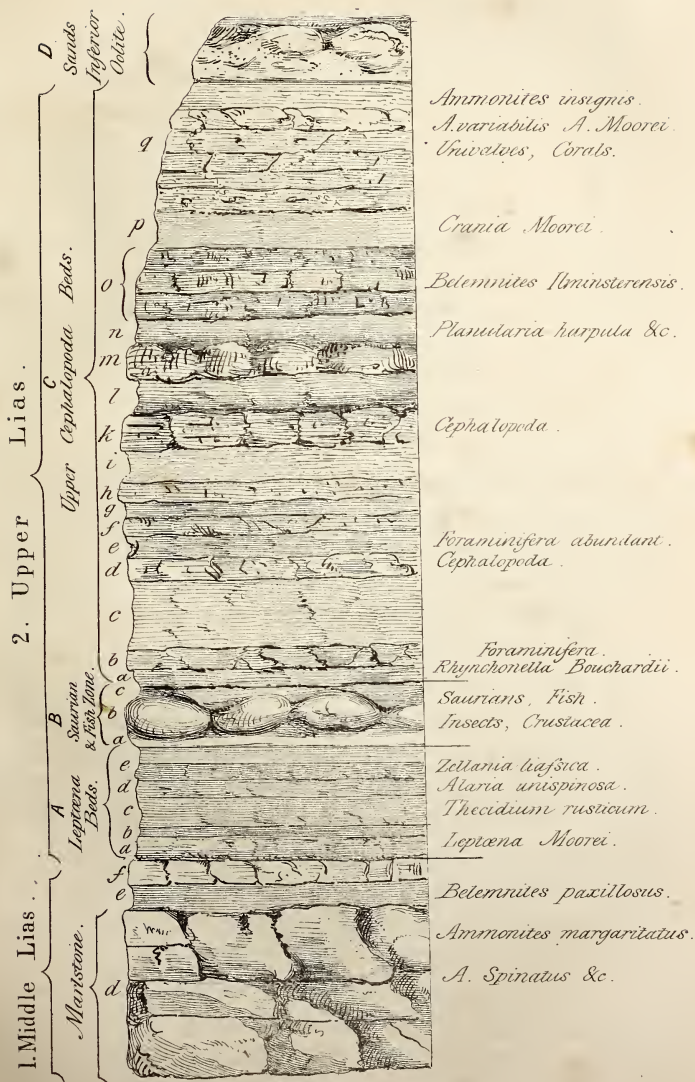 D
Sands
Inferior
Oolite.
2. Upper Lias.
C
Upper Cephalopoda Beds.
B
Saurian
& Fish Zone.
A
Leptœna
Beds.
1. Middle Lias.
Marlstone.
q
p
o
n
m
l
k
i
h
g
f
e
d
c
b
a
c
b
a
e
d
c
b
a
f
e
d
Ammonites insignis.
A. variabilis A. Moorei
Univalves, Corals.
Crania Moorei.
Belemnites Ilminsterensis.
Planularia harpula &c.
Cephalopoda.
Foraminifera abundant.
Cephalopoda.
Foraminifera.
Rhynchonella Bouchardii.
Saurians, Fish.
Insects, Crustacea.
Zellania liaſsica.
Alaria unispinosa.
Thecidium rusticum.
Leptœna Moorei.
Belemnites paxillosus.
Ammonites margaritatus.
A. Spinatus &c.